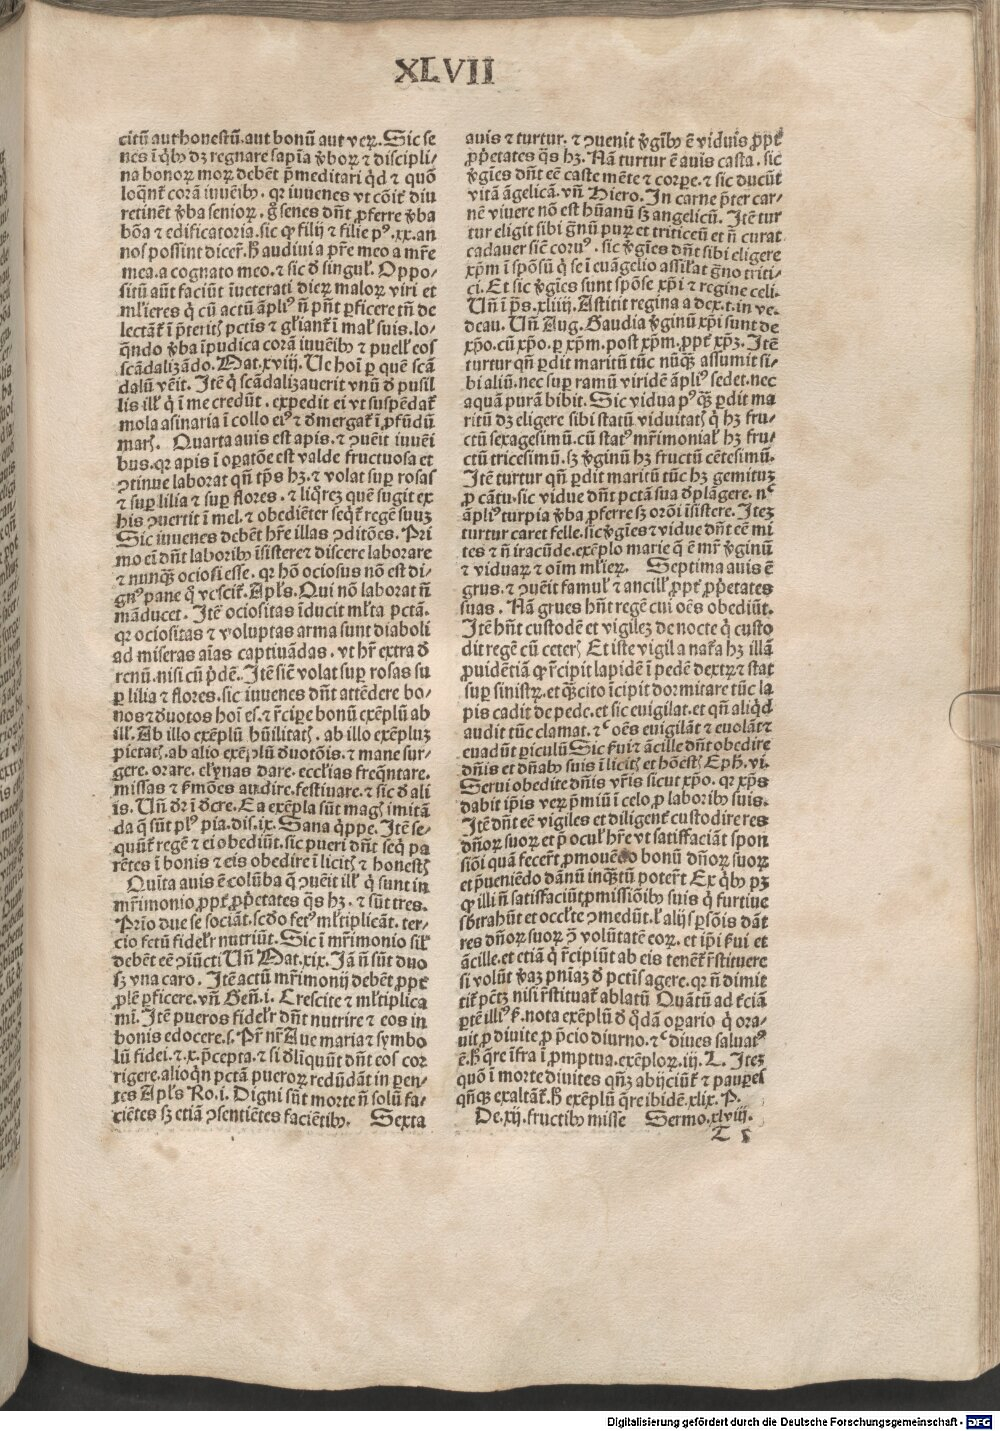 XLVII
citū aut honestū. aut bonū aut verꝝ. Sic se
nes ī q̇bꝰ dꝫ regnare sapīa v̄boꝝ ⁊ discipli-
na honoꝝ moꝝ debēt p̄meditari q̇d ⁊ quō
loqn̄t corā iuuēibꝰ. qꝛ iuuenes vt cōit̄ diu
retinēt v̄ba senioꝝ. g̊ senes dn̄t ꝓferre v̄ba
bōa ⁊ edificatoria. sic ꝙ filij ⁊ filie pꝰ. xx. an
nos possint dicer̄. h̄ audiui a pr̄e meo a mr̄e
mea. a cognato meo. ⁊ sic d̄ singul̄. Oppo-
sitū aūt faciūt īueterati dieꝝ maloꝝ viri et
ml̄ieres q̇ cū actū āpliꝰ n̄ pn̄t ꝑficere tn̄ de
lectāt̄ ī p̄teritꝭ pctis ⁊ gl̄iant̄ ī mal̄ suis. lo-
q̄ndo v̄ba īpudica corā iuuēibꝰ ⁊ puell̄ eos
scādalizādo. Mat. xviij. Ue hoī ꝑ quē scā
dalū vēit. Itē q̇ scādalizauerit vnū d̄ pusil
lis ill̄ q̇ ī me credūt. expedit ei vt suspēdat̄
mola asinaria ī collo eiꝰ ⁊ d̄mergat̄ ī ꝓfūdū
marꝭ. Quarta auis est apis. ⁊ ꝯuēit iuuēi
bus. qꝛ apis ī oꝑatōe est valde fructuosa et
ꝯtinue laborat qn̄ tp̄s hꝫ. ⁊ volat suꝑ rosas
⁊ suꝑ lilia ⁊ suꝑ flores. ⁊ liq̄reꝫ quē sugit ex
his ꝯuertit ī mel. ⁊ obediēter seq̇t̄ regē suuꝫ
Sic iuuenes debēt hr̄e illas ꝯditōes. Pri
mo eī dn̄t laboribꝰ īsistere ⁊ discere laborare
⁊ nunqꝫ ociosi esse. qꝛ hō ociosus nō est di-
gnꝰ pane q̇ vescit̄. Apl̄s. Qui nō laborat n̄
māducet. Itē ociositas īducit ml̄ta pctā.
qꝛ ociositas ⁊ voluptas arma sunt diaboli
ad miseras aīas captiuādas. vt hr̄ extra d̄
renū. nisi cū ṗdē. Itē siē volat suꝑ rosas su
ꝑ lilia ⁊ flores. sic iuuenes dn̄t attēdere bo-
nos ⁊ d̄uotos hoīes. ⁊ r̄cipe bonū exēplū ab
ill̄. Ab illo exēplū hūilitatꝭ. ab illo exēpluꝫ
pietatꝭ. ab alio exēplū d̄uotōis. ⁊ mane sur-
gere. orare. elꝭynas dare. eccl̄ias freq̄ntare.
missas ⁊ ẜmōes audire. festiuare. ⁊ sic d̄ ali
is. Un̄ dr̄ ī d̄cre. Ea exēpla sūt magꝭ imitā
da q̄ sūt plꝰ pia. dis. ix. Sana q̇ppe. Itē se-
quūt̄ regē ⁊ ei obediūt. sic pueri dn̄t seq̇ pa
rētes ī bonis ⁊ eis obedire ī licitꝭ ⁊ honestꝭ
Quīta auis ē colūba q̄ ꝯuēit ill̄ q̇ sunt in
mr̄imonio ꝓpt̄ ꝓp̄etates q̄s hꝫ. ⁊ sūt tres.
Prīo due se sociāt. scd̄o fetꝰ ml̄tiplicāt. ter-
cio fetū fidel̄r nutriūt. Sic ī mr̄imonio sil̄
debēt eē ꝯiūcti Un̄ Mat. xix. Iā n̄ sūt duo
sꝫ vna caro. Itē actū mr̄imonij debēt ꝓpt̄
ꝓlē ꝑficere. vn̄ Geñ. i. Crescite ⁊ ml̄tiplica
mī. Itē pueros fidel̄r dn̄t nutrire ⁊ eos in
bonis edocere. s. Pr̄ nr̄ Aue maria ⁊ symbo
lū fidei. ⁊. x. p̄cepta. ⁊ si d̄liq̇ūt dn̄t eos cor
rigere. alioq̇n pctā pueroꝝ redūdāt in ꝑen-
tes Apl̄s Ro. i. Digni sūt morte n̄ solū fa-
ciētes sꝫ etiā ꝯsentiētes faciētibꝰ. Sexta
auis ⁊ turtur. ⁊ ꝯuenit v̄gībꝰ ē viduis ꝓpt̄
ꝓp̄etates q̄s hꝫ. Nā turtur ē auis casta. sic
v̄gīes dn̄t eē caste mēte ⁊ corꝑe. ⁊ sic ducūt
vitā āgelicā. vn̄ Hiero. In carne p̄ter car-
nē viuere nō est hūanū sꝫ angelicū. Itē tur
tur eligit sibi g̊nū puꝝ et triticeū et n̄ curat
cadauer siē coruꝰ. sic v̄gīes dn̄t sibi eligere
xp̄m ī spōsū q̇ se ī euāgelio assīlat g̊no triti-
ci. Et sic v̄gīes sunt spōse xp̄i ⁊ regine celi.
Un̄ ī ps̄. xliiij. Astitit regina a dex. t. in ve-
deau. Un̄ Aug. Gaudia v̄ginū xp̄i sunt de
xp̄o. cū xp̄o. ꝑ xp̄m. post xp̄m. ꝓpt̄ xp̄ꝫ. Itē
turtur qn̄ ꝑdit maritū tūc nūqꝫ assumit si-
bi aliū. nec suꝑ ramū viridē āpliꝰ sedet. nec
aquā purā bibit. Sic vidua pꝰqꝫ ꝑdit ma
ritū dꝫ eligere sibi statū viduitatꝭ q̇ hꝫ fru-
ctū sexagesimū. cū statꝰ mr̄imonial̄ hꝫ fru-
ctū tricesimū. sꝫ v̄ginū hꝫ fructū cētesimū.
Itē turtur qn̄ ꝑdit maritū tūc hꝫ gemituꝫ
ꝓ cātu. sic vidue dn̄t pctā sua d̄plāgere. nᶜ
āpliꝰ turpia v̄ba ꝓferre sꝫ orōi īsistere. Iteꝫ
turtur caret felle. sic v̄gīes ⁊ vidue dn̄t eē mi
tes ⁊ n̄ iracūde. exēplo marie q̄ ē mr̄ v̄ginū
⁊ viduaꝝ ⁊ oīm ml̄ieꝝ. Septima auis ē
grus. ⁊ ꝯuēit famul̄ ⁊ ancill̄ ꝓpt̄ ꝓp̄etates
suas. Nā grues hn̄t regē cui oēs obediūt.
Itē hn̄t custodē et vigileꝫ de nocte q̇ custo
dit regē cū ceterꝭ Et iste vigil a nat̄a hꝫ illā
ꝓuidētiā ꝙ r̄cipit lapidē ī pedē dextꝝ ⁊ stat
suꝑ sinistꝝ. et qꝫcito īcipit dormitare tūc la
pis cadit de pede. et sic euigilat. et qn̄ aliq̇d
audit tūc clamat. ⁊ᶜ oēs euigilāt ⁊ euolāt ⁊
euadūt ꝑiculū Sic ẜui ⁊ ācille dn̄t obedire
dn̄is et dn̄abꝰ suis ī licitꝭ et hōestꝭ Eph̄. vi.
Serui obedite dn̄is vr̄is sicut xp̄o. qꝛ xp̄s
dabit ip̄is veꝝ p̄miū ī celo ꝓ laboribꝰ suis.
Itē dn̄t eē vigiles et diligent̄ custodire res
dn̄oꝝ suoꝝ et ꝓcul̄ hr̄e vt satiffaciāt spon
siōi quā fecer̄t ꝓmouēdo bonū dn̄oꝝ suoꝝ
et p̄ueniēdo dānū inqꝫtū poter̄t Ex q̇bꝰ pꝫ
ꝙ illi n̄ satiffaciūt ꝓmissiōibꝰ suis q̇ furtiue
sb̄trahūt et occl̄te ꝯmedūt. l̄ alijs ꝑsōis dāt
res dn̄oꝝ suoꝝ ꝯ̄ volūtatē eoꝝ. et ip̄i ẜui et
ācille. et etiā q̇ r̄cipiūt ab eis tenēt̄ r̄stituere
si volūt v̄aꝫ pn̄iaꝫ d̄ pctis agere. qꝛ n̄ dimit
tit̄ pctꝫ nisi r̄stituat̄ ablatū Quātū ad t̄ciā
ꝑtē illiꝰ ẜ. nota exēplū d̄ q̇dā oꝑario q̇ ora-
uit ꝓ diuite ꝓ p̄cio diurno. ⁊ᶜ diues saluatꝰ
ē. h̄ q̄re īfra ī ꝓmptua. exēploꝝ. iij. L. Iteꝫ
quō ī morte diuites qn̄qꝫ abijciūt̄ ⁊ paupes
qn̄qꝫ exaltāt̄. h̄ exēplū q̄re ibidē. xlix. P.
De. xij. fructibꝰ misse Sermo. xlviij.
T 5
Digitalisierung gefördert durch die Deutsche Forschungsgemeinschaft - DFG